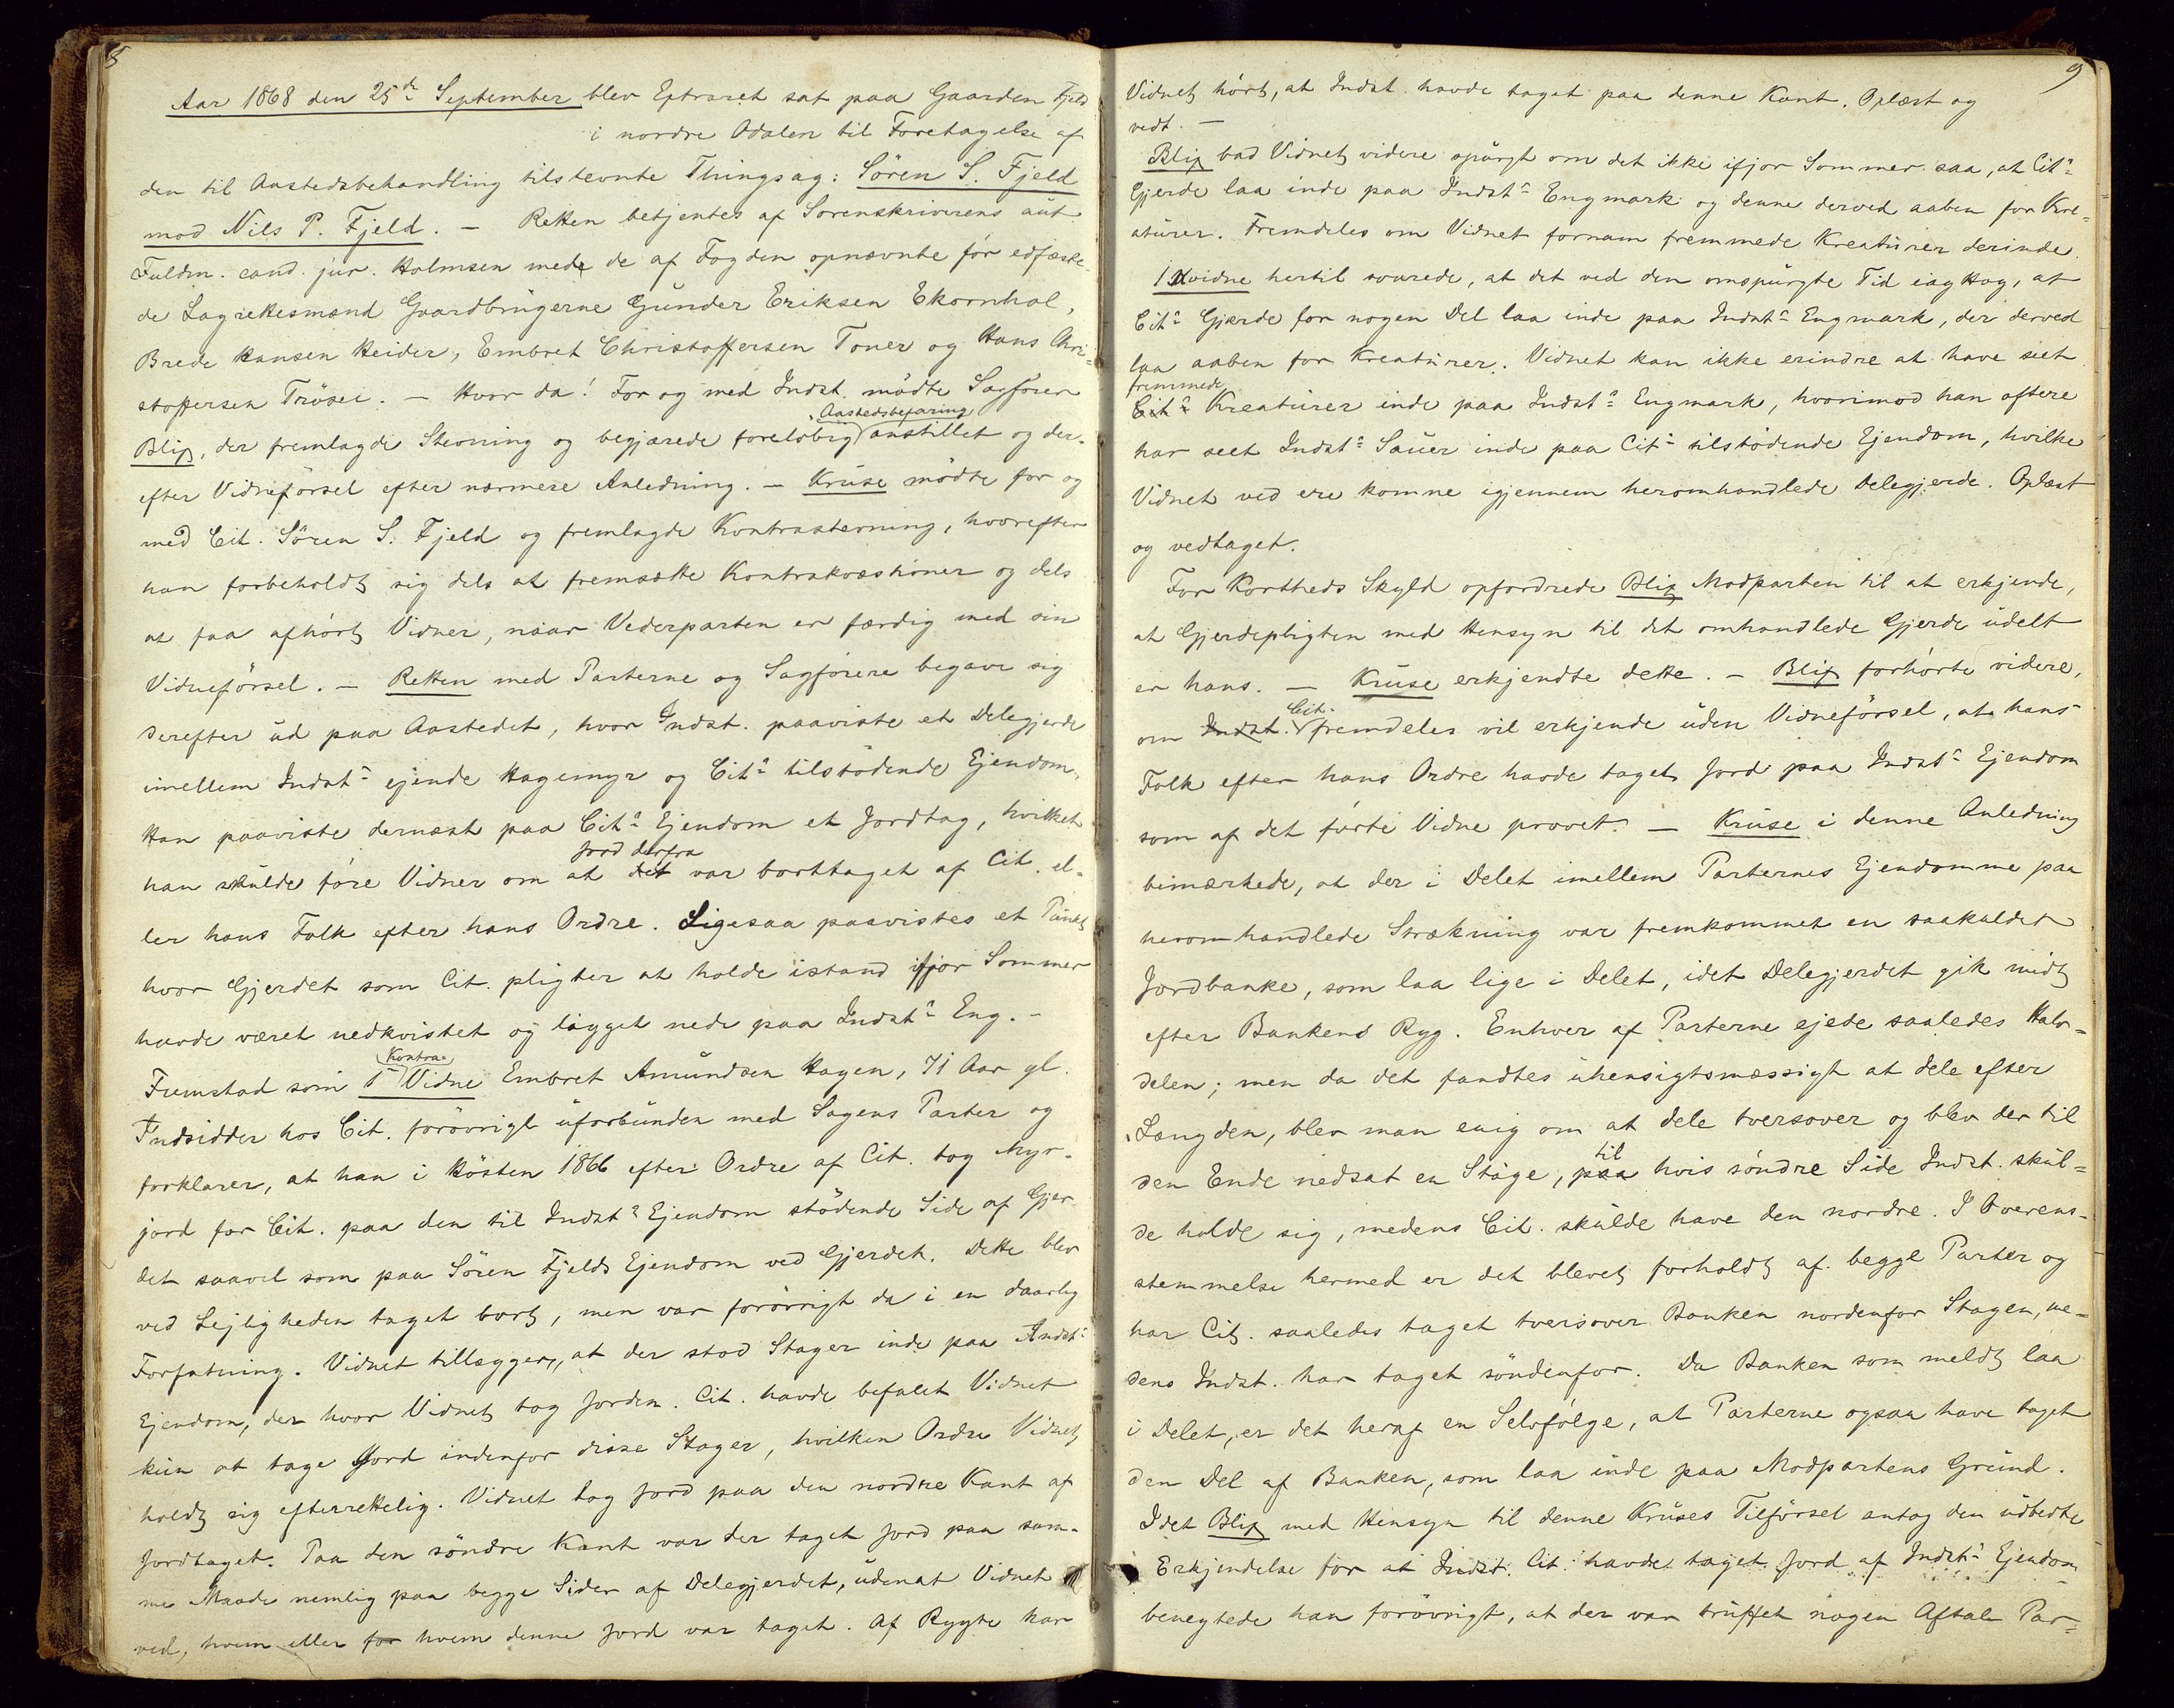 Aar 1868 den 25de September blev Extraret sat paa Gaarden Fjeld
i nordre Odalen til Foretagelse af
den til Aastedsbehandling tilstevnte Thingsag: Sören S. Fjeld
mod Nils P. Fjeld. — Retten betjentes af Sorenskriverens aut.
Fuldm. cand. jur. Holmsen med de af Fogden opnævnte før edfæste-
de Lagrettesmænd Gaardbrugerne Gunder Eriksen Ekornhol,
Brede Hansen Heider, Embret Christoffersen Toner og Hans Chri-
stoffersen Trösei. — Hvor da! For og med Indst. mødte Sagfører
Blix, der fremlagde Stevning og begjærede foreløbig Aastedsbefaring anstillet og der-
efter Vidneførsel efter nærmere Anledning. — Kruse mødte for og
med Cit. Sören S. Fjeld og fremlagde Kontrastevning, hvorefter
han forbeholdt sig dels at fremsætte Kontrakvæstioner og dels
at faa afhørt Vidner, naar Vederparten er færdig med sin
Vidneførsel. — Retten med Parterne og Sagførere begave sig
derefter ud paa Aastedet, hvor Indst. paaviste et Delegjerde
imellem Indsts ejende Hagemyr og Cits tilstødende Ejendom.
Han paaviste dernæst paa Cits Ejendom et Jordtag, hvilket
han skulde føre Vidner om at Jord derfra var borttaget af Cit. el-
ler hans Folk efter hans Ordre. Ligesaa paavistes et Punkt
hvor Gjerdet som Cit. pligter at holde istand ifjor Sommer
havde været nedkvistet og ligget nede paa Indsts Eng. —
Fremstod som 1 Kontra- Vidne Embret Amundsen Hagen, 71 Aar gl.
Indsidder hos Cit. forøvrigt uforbunden med Sagens Parter og
forklarer, at han i Høsten 1866 efter Ordre af Cit. tog Myr-
jord for Cit. paa den til Indsts Ejendom stødende Side af Gjer-
det saavel som paa Sören Fjelds Ejendom ved Gjerdet. Dette blev
ved Lejligheden taget bort, men var forøvrigt da i en daarlig
Forfatning. Vidnet tillægger, at der stod Stager inde paa Indsts
Ejendom, der hvor Vidnet tog Jorden. Cit. havde befalet Vidnet
kun at tage Jord indenfor disse Stager, hvilken Ordre Vidnet
holdt sig efterrettelig. Vidnet tog Jord paa den nordre Kant af
Jordtaget. Paa den søndre Kant var der taget Jord paa sam-
me Maade nemlig paa begge Sider af Delegjerdet, udenat Vidnet
ved, hvem eller for hvem denne Jord var taget. Af Rygte har
9
Vidnet hørt, at Indst. havde taget paa denne Kant. Oplæst og
vedt. —
Blix bad Vidnet videre spurgt om det ikke ifjor Sommer saa, at Cits
Gjerde laa inde paa Indsts Engmark og denne derved aaben for Kre-
aturer. Fremdeles om Vidnet fornam fremmede Kreaturer derinde.
1 Kvidne hertil svarede, at det ved den omspurgte Tid iagttog, at
Cits Gjerde for nogen Del laa inde paa Indsts Engmark, der derved
laa aaben for Kreaturer. Vidnet kan ikke erindre at have seet
fremmede
Cits Kreaturer inde paa Indsts Engmark, hvorimod han oftere
har seet Indsts Sauer inde paa Cits tilstødende Ejendom, hvilke
Vidnet ved ere komne igjennem heromhandlede Delegjerde. Oplæst
og vedtaget.
For Kortheds Skyld opfordrede Blix Modparten til at erkjende,
at Gjerdepligten med Hensyn til det omhandlede Gjerde udelt
er hans. — Kruse erkjendte dette. — Blix forhørte videre,
om Indst. Cit. fremdeles vil erkjende uden Vidneførsel, at hans
Folk efter hans Ordre havde taget Jord paa Indsts Ejendom
som af det førte Vidne provet. — Kruse i denne Anledning
bemærkede, at der i Delet imellem Parternes Ejendomme paa
heromhandlede Strækning var fremkommet en saakaldet
Jordbanke, som laa lige i Delet, idet Delegjerdet gik midt
efter Bankens Ryg. Enhver af Parterne ejede saaledes Halv-
delen; men da det fandtes uhensigtsmæssigt at dele efter
Længden, blev man enig om at dele tversover og blev der til
den Ende nedsat en Stage, paa til hvis søndre Side Indst. skul-
de holde sig, medens Cit. skulde have den nordre. I Overens-
stemmelse hermed er det blevet forholdt af begge Parter og
har Cit. saaledes taget tversover Banken nordenfor Stagen, me-
dens Indst. har taget søndenfor. Da Banken som meldt laa
i Delet, er det heraf en Selvfølge, at Parterne ogsaa have taget
den Del af Banken, som laa inde paa Modpartens Grund.
Idet Blix med Hensyn til denne Kruses Tilførsel antog den udbedte
Erkjendelse for at Indst. Cit. havde taget Jord af Indsts Ejendom
benegtede han forøvrigt, at der var truffet nogen Aftale Par-